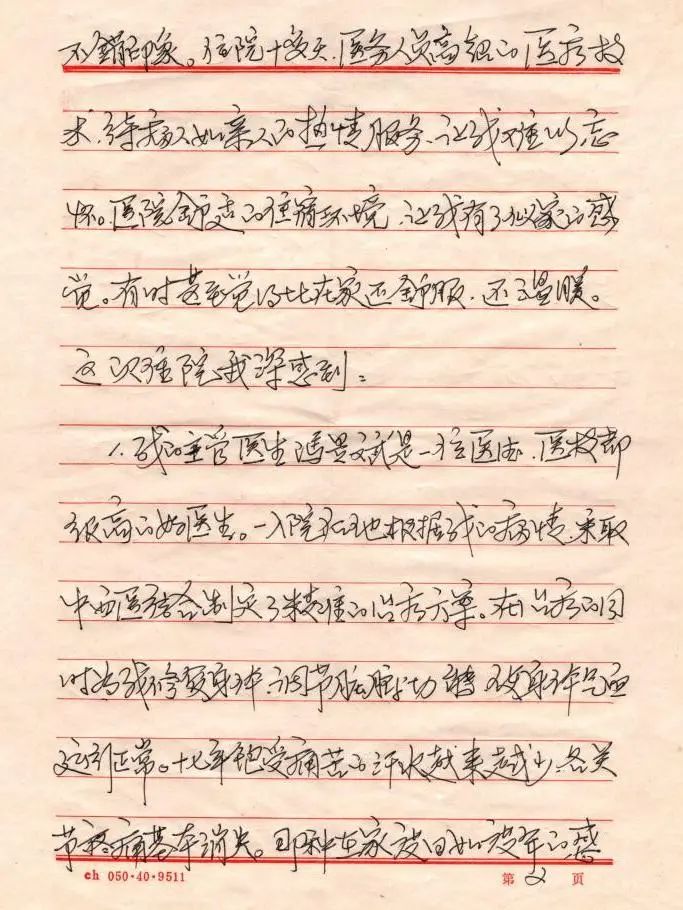 不解印象。住院十多天,医务人员高超的医疗技
术,待病人如亲人的热情服务,让我难以忘
怀。医院舒适的住病环境,让我有了似家的感
觉。有时甚至觉得比在家还舒服,还温暖。
这次住院我深感到:
1.我的主管医生冯是一位医德、医技都
很高的好医生。一入院她根据我的病情,采取
中西医结合制定了精准的治疗方案。在治疗的同
时为我修复身体,调节脏腑功能,使身体气血
运行正常。十七年饱受痛苦的汗水越来越少,各关
节疼痛基本消失。那种在家度日如度年的感
ch 050·40·9511
第2页